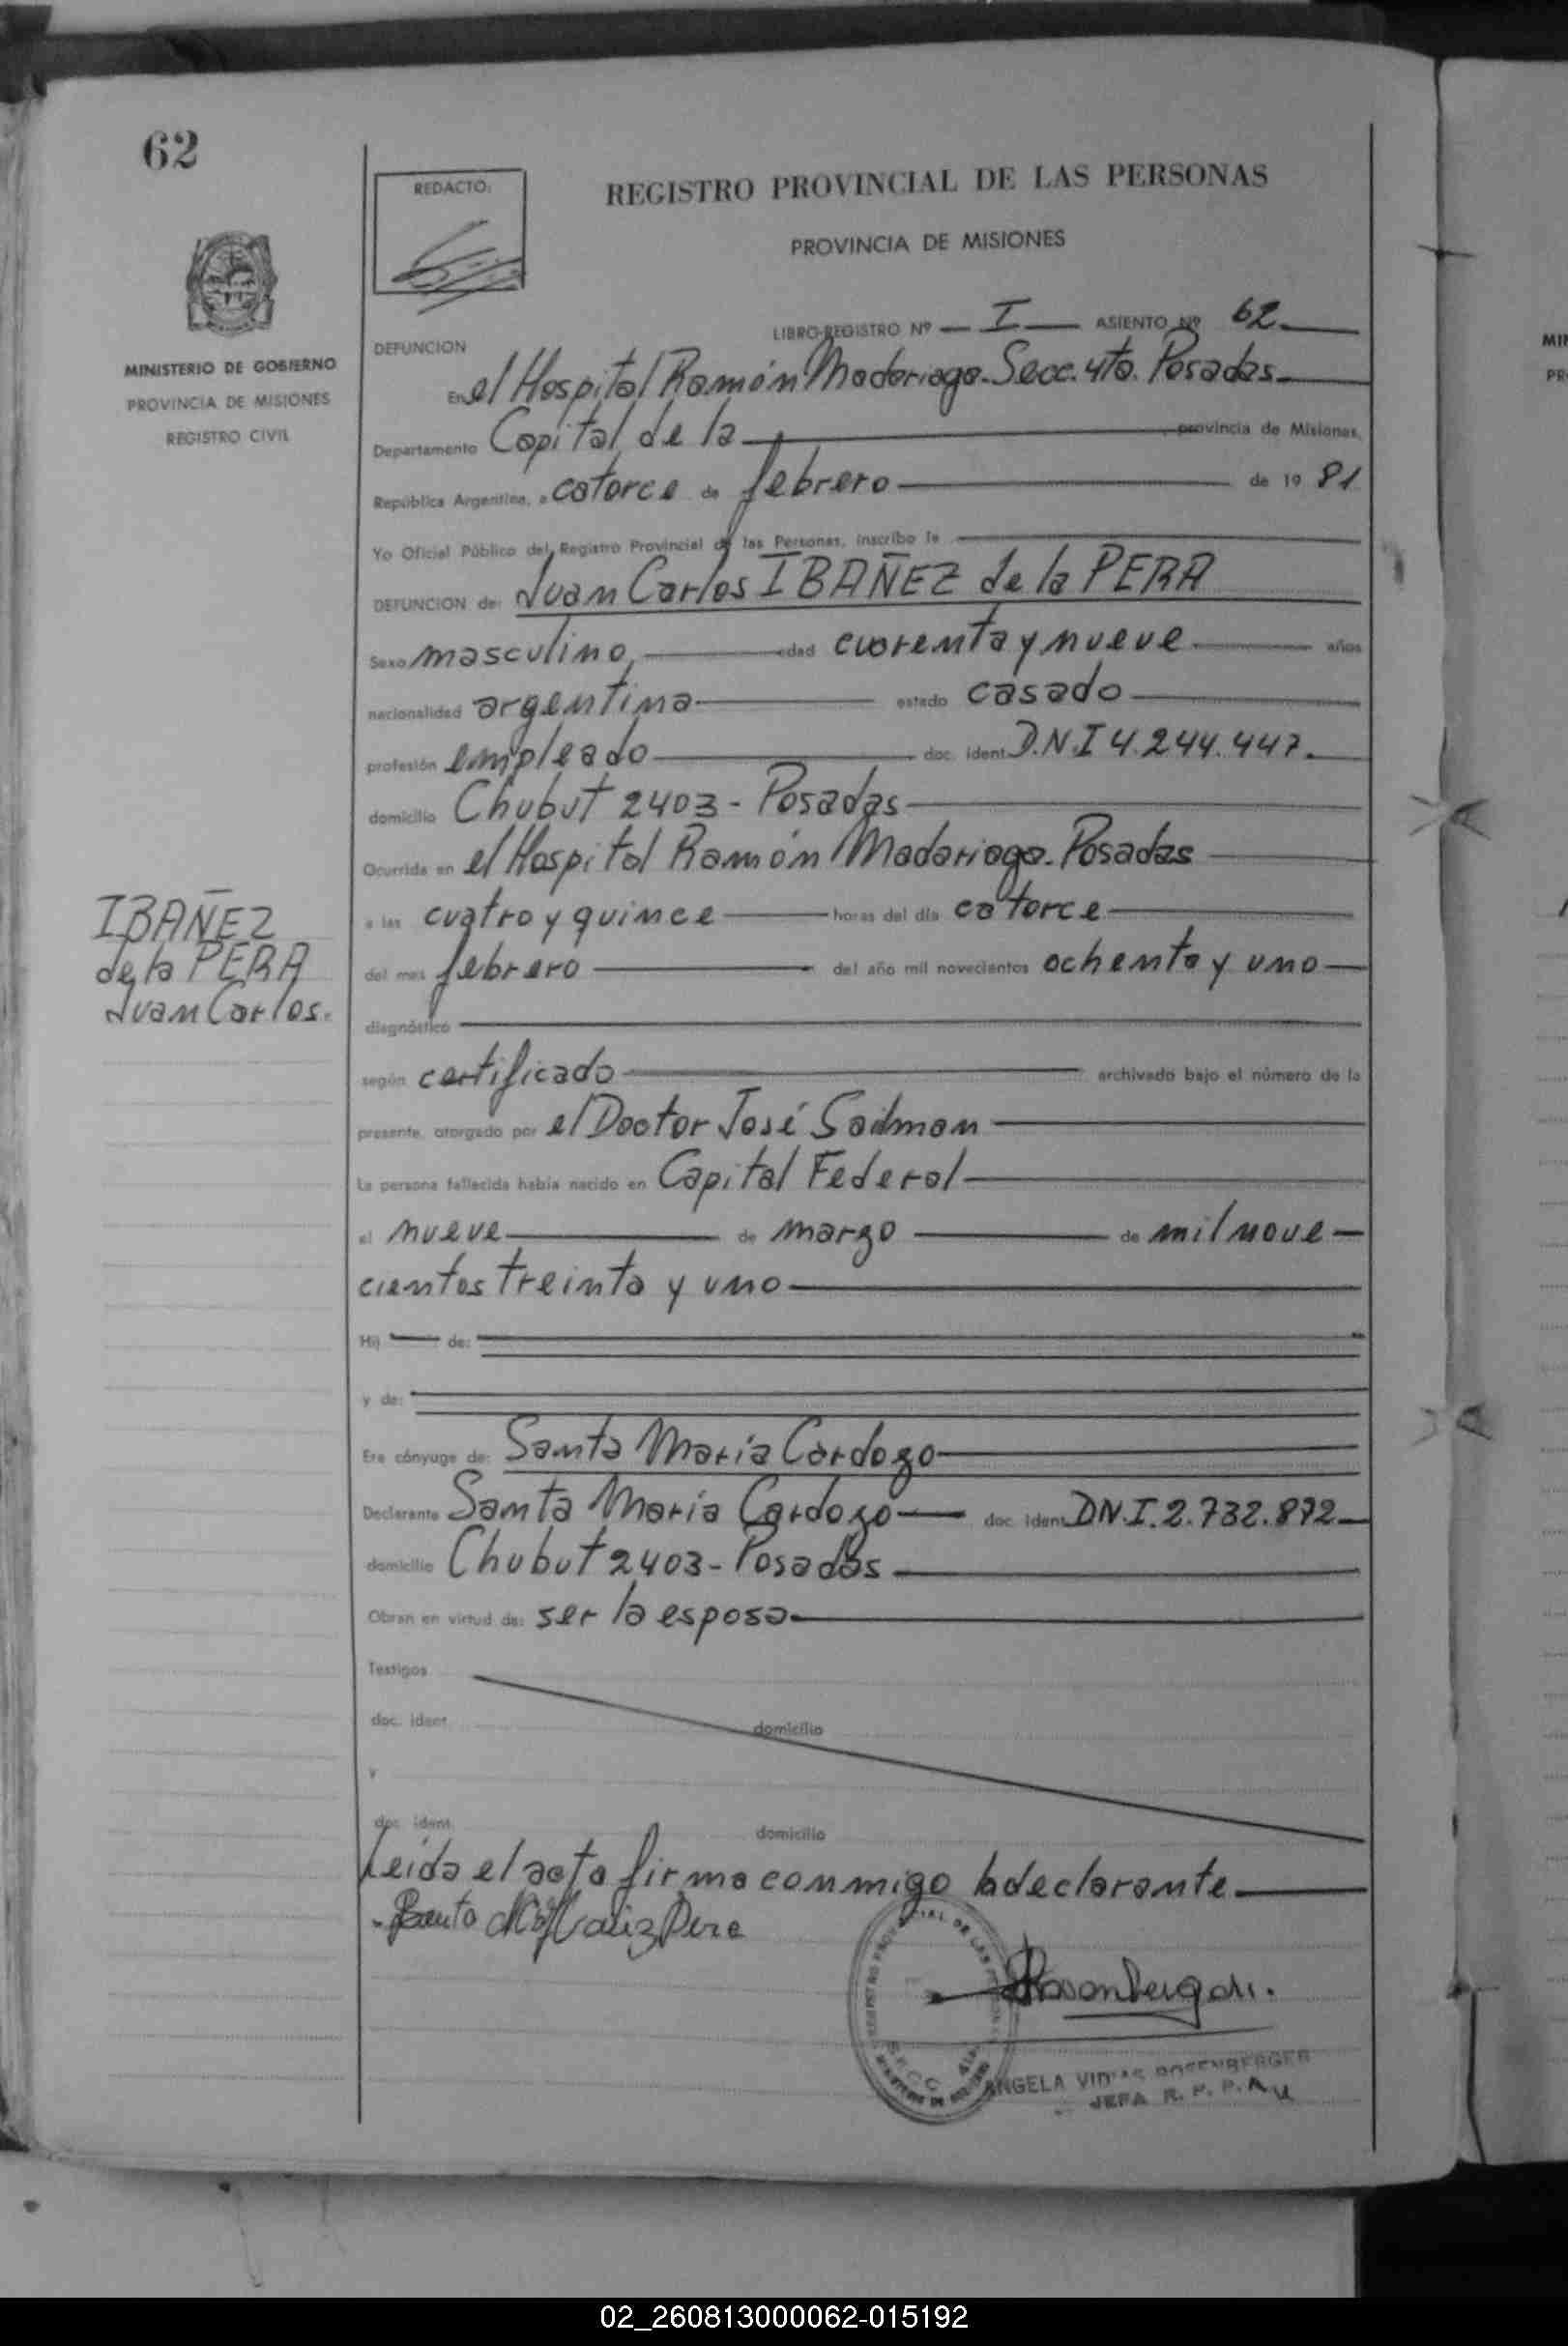 62
REDACTO:
REGISTRO PROVINCIAL DE LAS PERSONAS
PROVINCIA DE MISIONES
MINISTERIO DE GOBIERNO
PROVINCIA DE MISIONES
REGISTRO CIVIL
LIBRO-REGISTRO Nº I ASIENTO Nº 62
DEFUNCION
En el Hospital Ramón Madariaga. Secc. 4ta. Posadas
Departamento Capital, de la provincia de Misiones,
República Argentina, a catorce de febrero de 19 81
Yo Oficial Público del Registro Provincial de las Personas, inscribo la
DEFUNCION de: Juan Carlos IBAÑEZ de la PERA
Sexo masculino, edad cuarenta y nueve años
nacionalidad argentina estado casado
profesión empleado doc. ident. D.N.I 4.244.447.
domicilio Chubut 2403 - Posadas
Ocurrida en el Hospital Ramón Madariaga. Posadas
a las cuatro y quince horas del día catorce
del mes febrero del año mil novecientos ochenta y uno
IBAÑEZ
de la PERA
Juan Carlos.
diagnóstico
según certificado archivado bajo el número de la
presente, otorgado por el Doctor José
La persona fallecida había nacido en Capital Federal
el nueve de marzo de mil nove
cientos treinta y uno
Hij de:
y de:
Era cónyuge de: Santa María Cardozo
Declarante Santa María Cardozo doc. ident. DN.I.2.732.872
domicilio Chubut 2403 - Posadas
Obran en virtud de: ser la esposa
Testigos
doc. ident. domicilio
y
doc. ident. domicilio
Leída el acta firma conmigo la declarante
ANGELA ROSENBERGER
JEFA R. P. P.
02_260813000062-015192